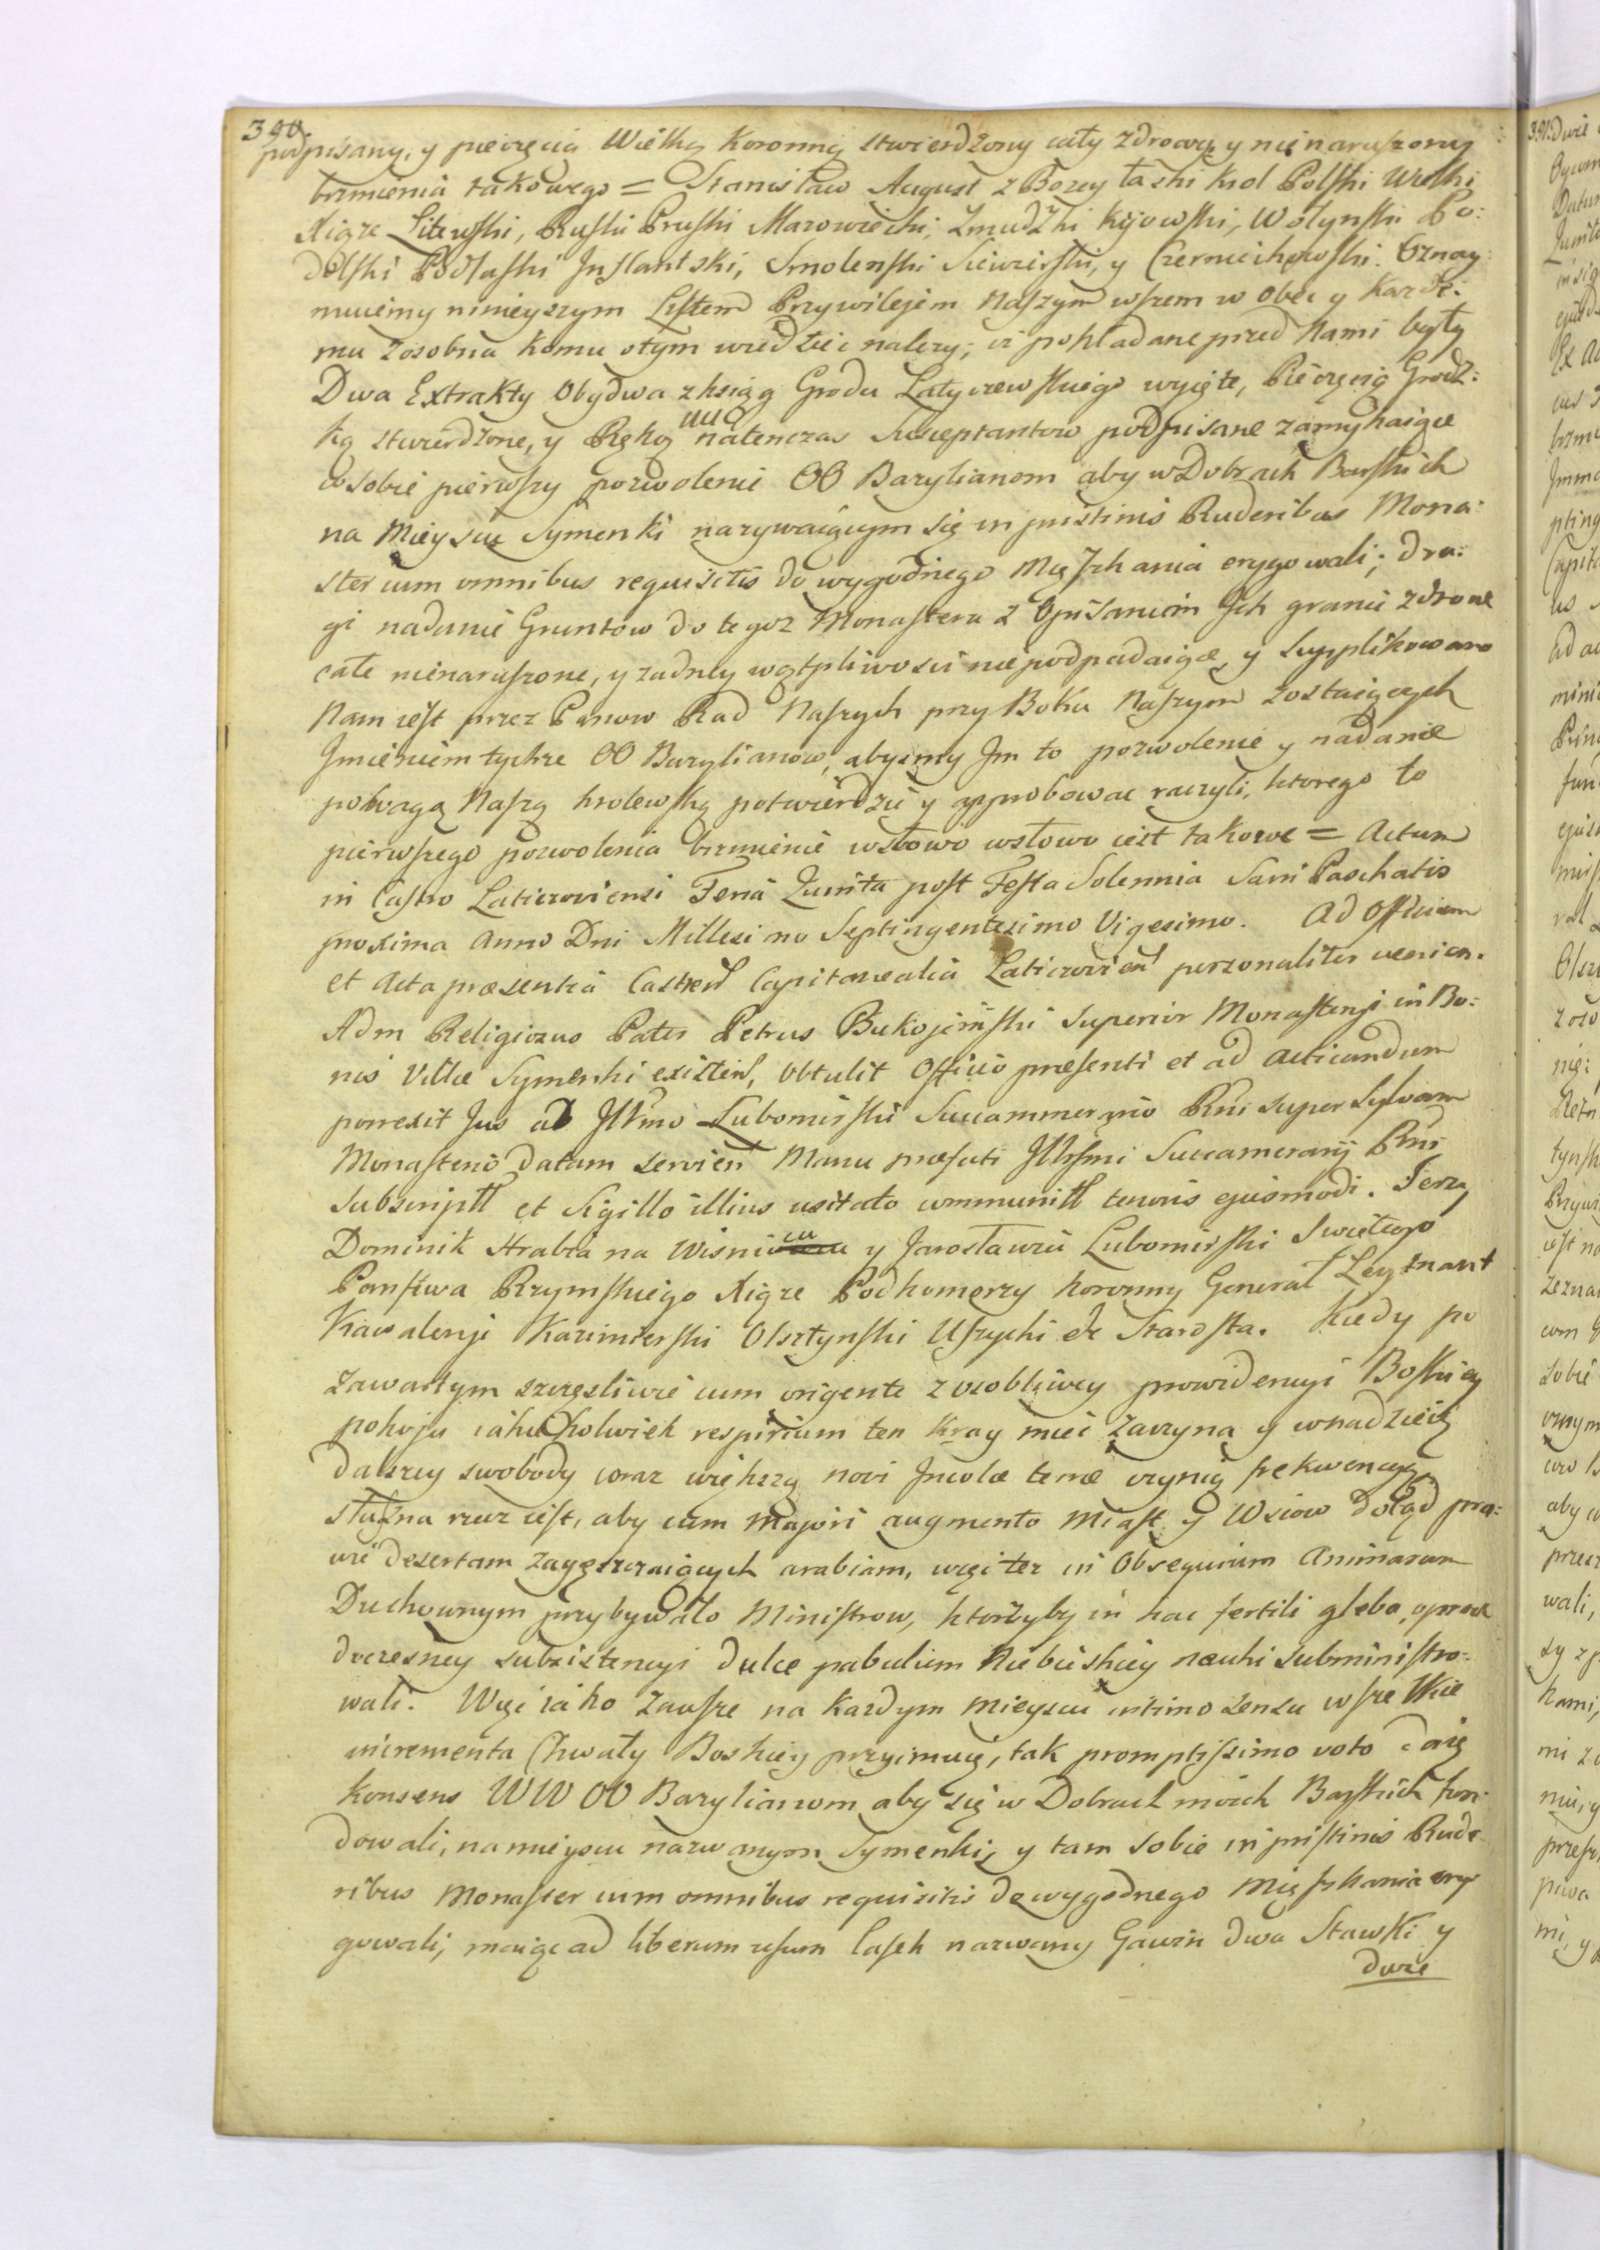 390.
podpisany, y pieczęcią Wielką Koronną stwierdzony cały zdrowy y nienaruszony
brzmienia takowego = Stanisław August z Bozey łaski Krol Polski Wielki
Xiąze Litewski, Ruski Pruski Mazowiecki, Zmudzki Kijowski, Wołynski Po:
dolski Podlaski Inflantski, Smolenski Siewierski, y Czerniechowski. Oznay:
muiemy ninieyszym Listem Przywilejem Naszym wszem w obec y kazde:
mu zosobna komu otym wiedziec nalezy; iz pokładane przed Nami były
Dwa Extrakty Obydwa z ksiąg Grodu Latyczewskiego wyięte, Pieczęcią Grodz:
ką stwierdzone, y Ręką natenczas Susceptantow podpisane zamykaiące
w sobie pierwszy pozwolenie OO Bazylianom aby w Dobrach Barskich
na Mieyscu Symenki nazywaiącym się in pristinis Ruderibus Mona:
ster cum omnibus requisitis do wygodnego Mięszkania erygowali; dru:
gi nadanie Gruntow do tegoz Monasteru z Opisaniem Ich granic zdrowe
całe nienaruszone, y zadney wątpliwosci niepodpadaiące, y supplikowano
Nam iest przez Panow Rad Naszych przy Boku Naszym zostaiących
Imieniem tychze OO Bazylianow, abysmy Im to pozwolenie y nadanie
powagą Naszą krolewską potwierdzic y approbowac raczyli, ktorego to
pierwszego pozwolenia brzmienie wsłowo wsłowo iest takowe = Actum
in Castro Laticzoviensi Feria Quinta post Festa Solennia Sacri Paschatis
proxima Anno Dni Millesimo Septingentesimo Vigesimo. Ad Officium
et Acta præsentia Castren Capitanealia Laticzovien personaliter venien.
Adm Religiozus Pater Petrus Bukojemski Superior Monasterji in Bo:
nis Villæ Symenki existens, obtulit Officio præsenti et ad acticandum
porrexit Jus ab Illmo Lubomirski Succammerario Rni super Sylvam
Monasterio datam servien Manu præfati Illrsmi Succamerarij Rni
Subscriptt et Sigillo illius usitato communitt tenoris ejusmodi. Jerzy
Dominik Hrabia na Wisniczu y Jarosławiu Lubomirski Swiętego
Panstwa Rzymskiego Xiąze Podkomorzy koronny Generał Leytnant
Kawalerji Kazimierski Olsztynski Uszycki etc Starosta. Kiedy po
zawartym szczęsliwie cum origente z osobliwey prowidencyi Boskiey
pokoju iakuzkolwiek respirium ten Kray miec zaczyna y w nadzieię
dalszey swobody coraz większą novi Incolæ terræ czynią frekwencyą
słuszna rzecz iest, aby cum Majori augmento Miast y Wsiow dotąd pra:
wie desertam zagęszczaiących arabiam, więc tez in Obsequium Animarum
Duchownym przybywało Ministrow, ktorzyby in hac fertili gleba, oprocz
doczesney subzistencyi dulce pabulum Niebieskiey nauki subministro:
wali. Więc iako zawsze na kazdym Mieyscu intimo sensu wszelkie
incrementa Chwały Boskiey przyimuię, tak promptissimo voto daię
konsens WW OO Bazylianom aby się w Dobrach moich Barskich fun:
dowali, na mieyscu nazwanym Symenki, y tam sobie in pristinis Rude
ribus Monaster cum omnibus requisitis do wygodnego Mięszkania ery
gowali, maiąc ad liberum usum lasek nazwany Gawin dwa Stawki y
dwie